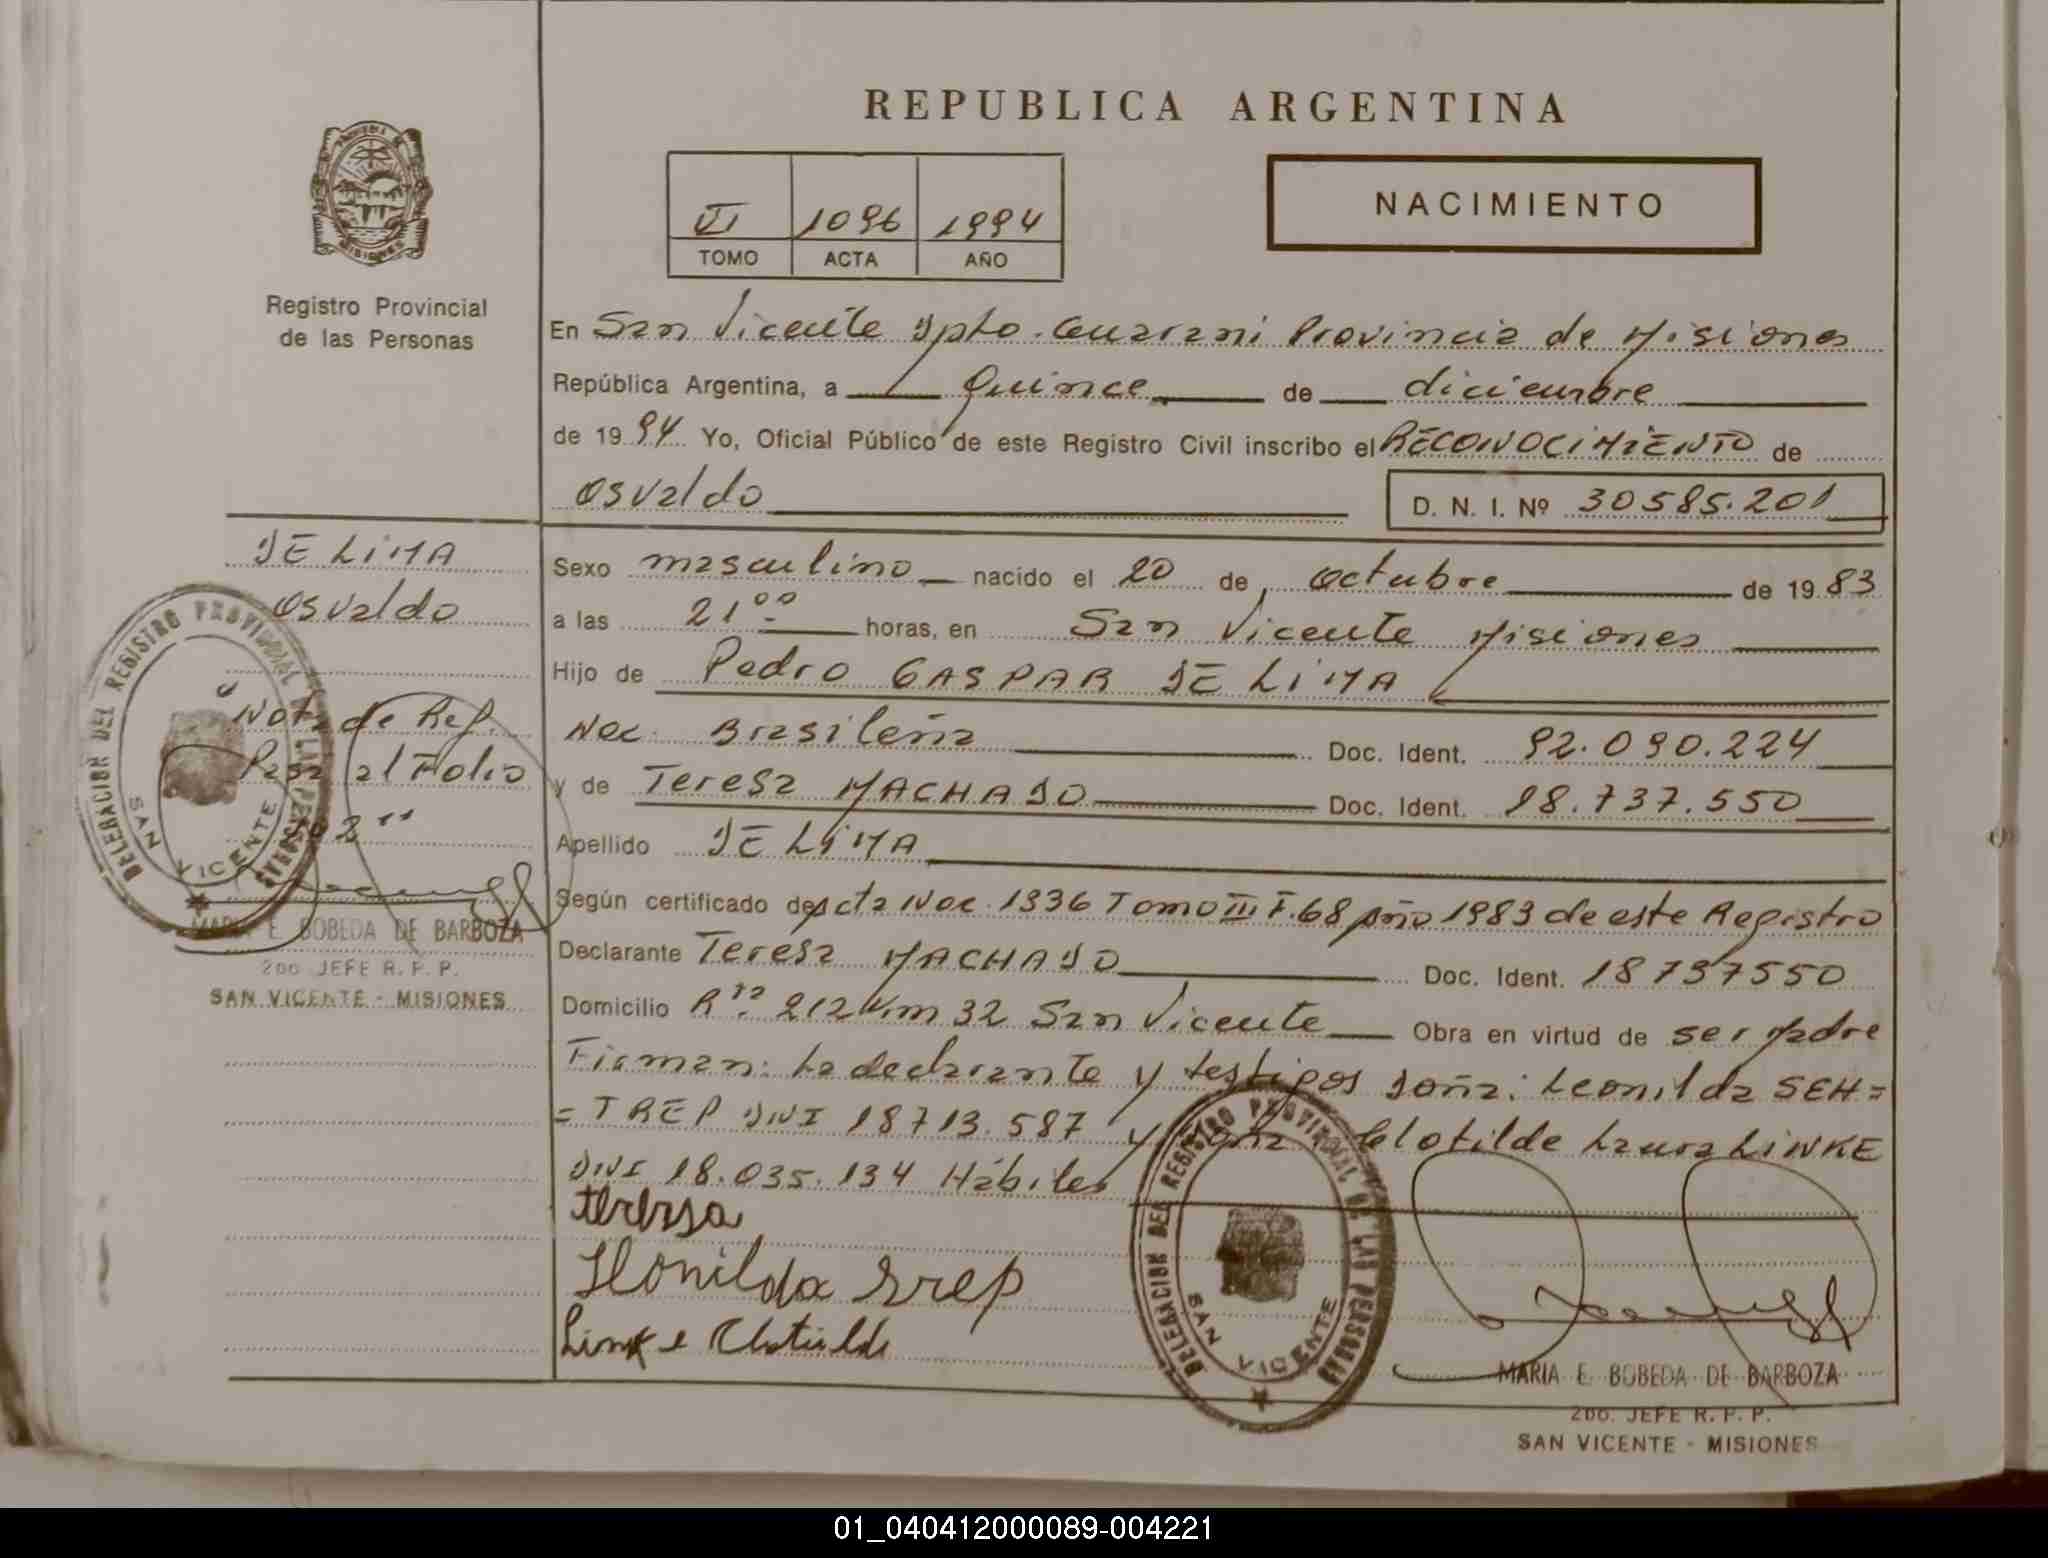 REPUBLICA ARGENTINA
VI 1096 1994
TOMO ACTA AÑO
NACIMIENTO
MISIONES
Registro Provincial
de las Personas
En San Vicente Dpto. Guarani Provincia de Misiones
República Argentina, a Quince de diciembre
de 1994 Yo, Oficial Público de este Registro Civil inscribo el RECONOCIMIENTO de
Osvaldo D. N. I. Nº 30585.201
Sexo masculino nacido el 20 de Octubre de 1983
a las 21 00 horas, en San Vicente Misiones
Hijo de Pedro GASPAR DE LIMA
Nac. Brasileña Doc. Ident. 92.090.224
y de Teresa MACHADO Doc. Ident. 18.737.550
Apellido DE LIMA
Según certificado de Acta Nac. 1336 Tomo III F. 68 Año 1983 de este Registro
Declarante Teresa MACHADO Doc. Ident. 18737550
Domicilio Rta. 212 Km 32 San Vicente Obra en virtud de ser Madre
Firman: La declarante y testigos Doña: Leonilda SEH=
=TREP DNI 18713.587 y Doña Clotilde Laura LINKE
DNI 18.035.134 Hábiles
teresa
Leonilda Strep
Linke Clotilde
DELEGACION DEL REGISTRO PROVINCIAL DE LAS PERSONAS
SAN VICENTE
MARIA E. BOBEDA DE BARBOZA
2do. JEFE R. P. P.
SAN VICENTE - MISIONES
DE LIMA
Osvaldo
Nota de Ref.
Pasa al Folio
2"
DELEGACION DEL REGISTRO PROVINCIAL DE LAS PERSONAS
SAN VICENTE
MARIA E. BOBEDA DE BARBOZA
2do. JEFE R. P. P.
SAN VICENTE - MISIONES
01_040412000089-004221